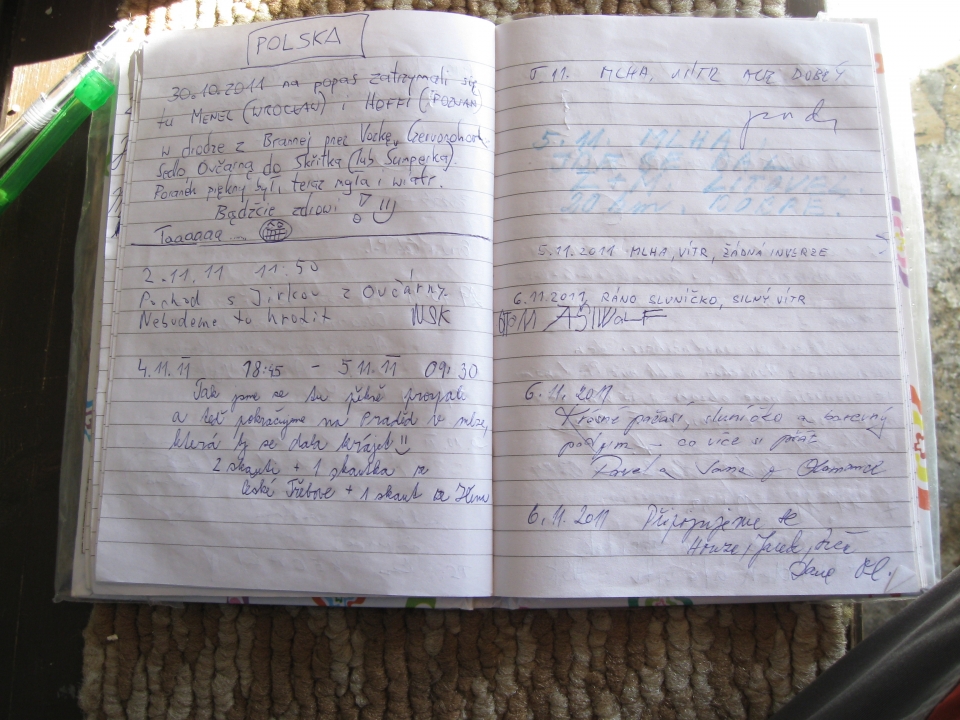 POLSKA
30.10.2011 na popas zatrzymali się
tu MENEL (WROCŁAW) i HOFFI (POZNAŃ)
w drodze z Brannej przez Vozkę,
Sedlo, Ovčárną do Skřítka (lub Šumperka).
Poranek piękny był, teraz mgła i wiatr.
Bądźcie zdrowi!
Taaaaaa...
2.11.11 11:50
Pochod s Jirkou z Ovčárny.
Nebudeme to hrotit NSK
4.11.11 18:45 - 5.11.11 09:30
Tak jsme se tu pěkně prospali
a teď pokračujeme na Praděd v mlze,
která by se dala krájet
2 skauti + 1 skautka ze
České Třebové + 1 skaut ze
5 11. MLHA, VÍTR DOBRÝ
5.11. MLHA,
Z+M LITOVEL
20 km. DOBŘE.
5.11.2011 MLHA, VÍTR, ŽÁDNÁ INVERZE
6.11.2011, RÁNO SLUNÍČKO, SILNÝ VÍTR
6.11.2011
Krásné počasí, sluníčko a barevný
podzim - co více si přát
Pavel a Jana z Olomouce
6.11.2011 Připojujeme se